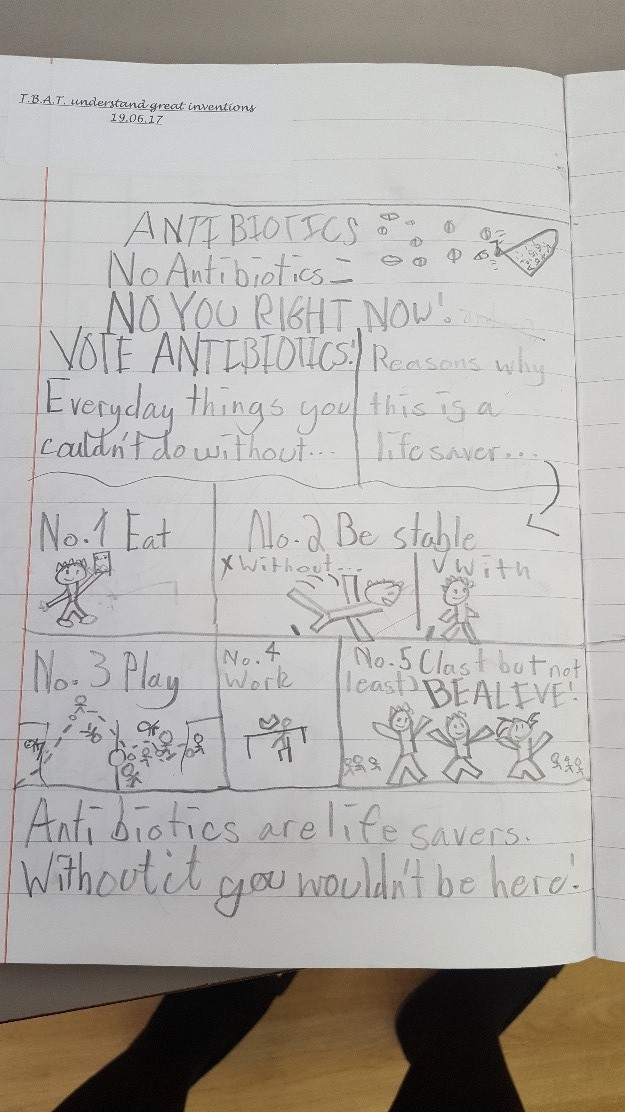 T.B.A.T. understand great inventions
19.06.17
ANTIBIOTICS
No Antibiotics =
NO YOU RIGHT NOW!
VOTE ANTIBIOTICS!
Everyday things you
couldn't do without...
Reasons why
this is a
life saver...
No.1 Eat
No.2 Be stable
x Without...
√ With
No.3 Play
No.4
Work
No.5 (last but not
least) BE ALIVE!
Antibiotics are life savers.
Without it you wouldn't be here!